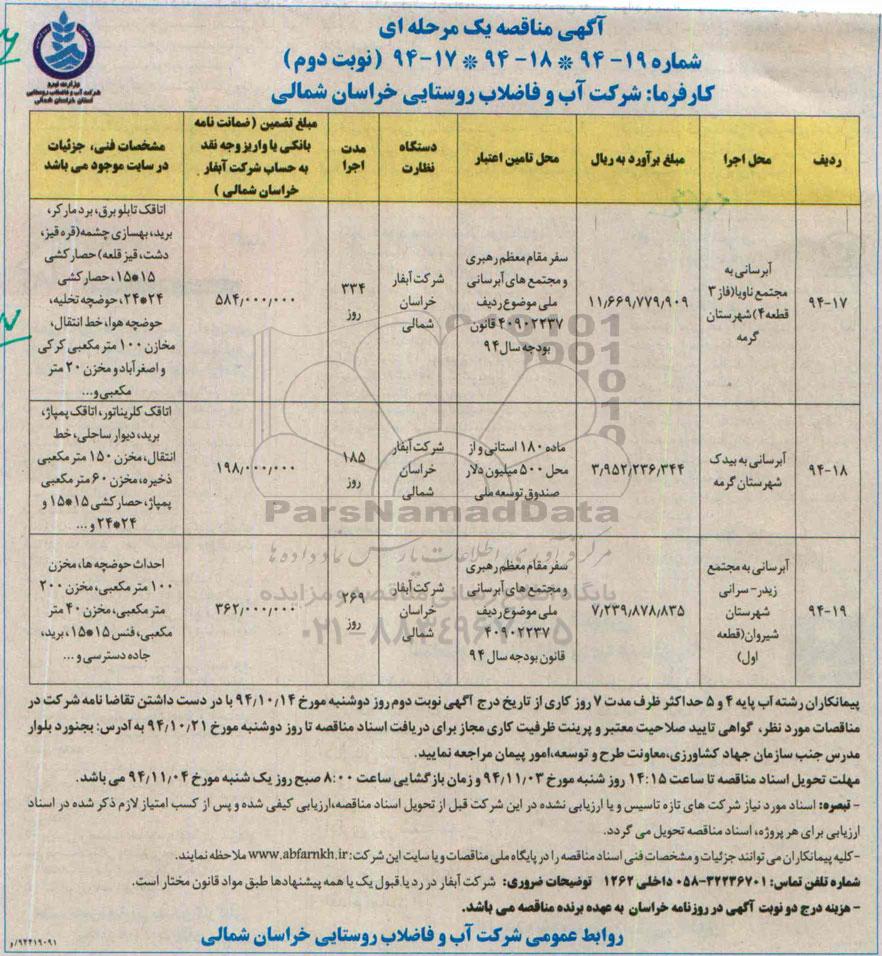 آگهی مناقصه یک مرحله ای
شماره ۱۹-۹۴ * ۱۸-۹۴ * ۱۷-۹۴ (نوبت دوم)
کارفرما: شرکت آب و فاضلاب روستایی خراسان شمالی
وزارت نیرو
شرکت آب و فاضلاب روستایی
استان خراسان شمالی
ردیف
محل اجرا
مبلغ برآورد به ریال
محل تامین اعتبار
دستگاه
نظارت
مدت
اجرا
مبلغ تضمین (ضمانت نامه
بانکی یا واریز وجه نقد
به حساب شرکت آبفار
خراسان شمالی)
مشخصات فنی، جزئیات
در سایت موجود می باشد
۹۴-۱۷
آبرسانی به
مجتمع ناویا(فاز ۳
قطعه۴) شهرستان
گرمه
۱۱٫۶۶۹٫۷۷۹٫۹۰۹
سفر مقام معظم رهبری
و مجتمع های آبرسانی
ملی موضوع ردیف
۴۰۹۰۲۲۳۷ قانون
بودجه سال ۹۴
شرکت آبفار
خراسان
شمالی
۳۳۴
روز
۵۸۴٫۰۰۰٫۰۰۰
اتاقک تابلو برق، برد مارکر،
برید، بهسازی چشمه(قره قیز،
دشت، قیز قلعه) حصار کشی
۱۵*۱۵، حصار کشی
۲۴*۲۴، حوضچه تخلیه،
حوضچه هوا، خط انتقال،
مخازن ۱۰۰ متر مکعبی کرکی
و اصغرآباد و مخزن ۲۰ متر
مکعبی و...
۹۴-۱۸
آبرسانی به بیدک
شهرستان گرمه
۳٫۹۵۲٫۲۳۶٫۳۴۴
ماده ۱۸۰ استانی و از
محل ۵۰۰ میلیون دلار
صندوق توسعه ملی
شرکت آبفار
خراسان
شمالی
۱۸۵
روز
۱۹۸٫۰۰۰٫۰۰۰
اتاقک کلریناتور، اتاقک پمپاژ،
برید، دیوار ساحلی، خط
انتقال، مخزن ۱۵۰ متر مکعبی
ذخیره، مخزن ۶۰ متر مکعبی
پمپاژ، حصار کشی ۱۵*۱۵ و
۲۴*۲۴ و ...
۹۴-۱۹
آبرسانی به مجتمع
زیدر- سرانی
شهرستان
شیروان(قطعه
اول)
۷٫۲۳۹٫۸۷۸٫۸۳۵
سفر مقام معظم رهبری
و مجتمع های آبرسانی
ملی موضوع ردیف
۴۰۹۰۲۲۳۷
قانون بودجه سال ۹۴
شرکت آبفار
خراسان
شمالی
۲۶۹
روز
۳۶۲٫۰۰۰٫۰۰۰
احداث حوضچه ها، مخزن
۱۰۰ متر مکعبی، مخزن ۲۰۰
متر مکعبی، مخزن ۴۰ متر
مکعبی، فنس ۱۵*۱۵، برید،
جاده دسترسی و ...
ParsNamadData
مرکز فرآوری اطلاعات پارس نماد داده ها
۰۲۱-۸۸۳۴۹۶۷۰-۵
پیمانکاران رشته آب پایه ۴ و ۵ حداکثر ظرف مدت ۷ روز کاری از تاریخ درج آگهی نوبت دوم روز دوشنبه مورخ ۹۴٫۱۰٫۱۴ با در دست داشتن تقاضا نامه شرکت در
مناقصات مورد نظر، گواهی تایید صلاحیت معتبر و پرینت ظرفیت کاری مجاز برای دریافت اسناد مناقصه تا روز دوشنبه مورخ ۹۴٫۱۰٫۲۱ به آدرس: بجنورد بلوار
مدرس جنب سازمان جهاد کشاورزی،معاونت طرح و توسعه،امور پیمان مراجعه نمایید.
مهلت تحویل اسناد مناقصه تا ساعت ۱۴:۱۵ روز شنبه مورخ ۹۴٫۱۱٫۰۳ و زمان بازگشایی ساعت ۸:۰۰ صبح روز یک شنبه مورخ ۹۴٫۱۱٫۰۴ می باشد.
- تبصره: اسناد مورد نیاز شرکت های تازه تاسیس و یا ارزیابی نشده در این شرکت قبل از تحویل اسناد مناقصه،ارزیابی کیفی شده و پس از کسب امتیاز لازم ذکر شده در اسناد
ارزیابی برای هر پروژه، اسناد مناقصه تحویل می گردد.
-کلیه پیمانکاران می توانند جزئیات و مشخصات فنی اسناد مناقصه را در پایگاه ملی مناقصات و یا سایت این شرکت: www.abfarnkh.ir ملاحظه نمایند.
شماره تلفن تماس: ۳۲۲۳۶۷۰۱-۰۵۸ داخلی ۱۲۶۲ توضیحات ضروری: شرکت آبفار در رد یا قبول یک یا همه پیشنهادها طبق مواد قانون مختار است.
- هزینه درج دو نوبت آگهی در روزنامه خراسان به عهده برنده مناقصه می باشد.
روابط عمومی شرکت آب و فاضلاب روستایی خراسان شمالی
۹۴۴۱۹۰۹۱/و